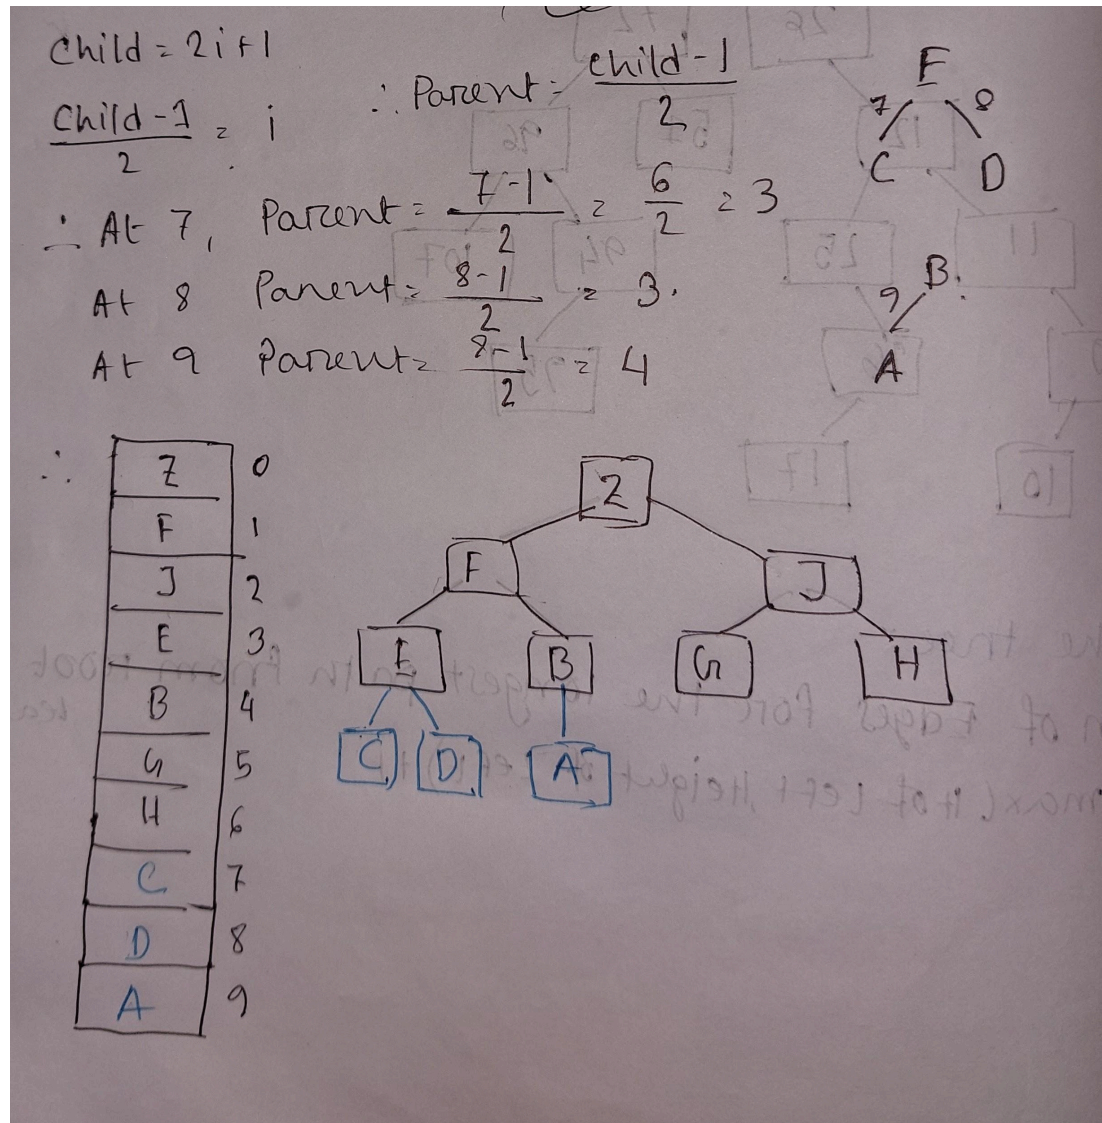 Child = 2i+1
(Child-1)/2 = i ∴ Parent = (child-1)/2
∴ At 7, Parent = (7-1)/2 = 6/2 = 3
At 8 Parent = (8-1)/2 = 3.
At 9 Parent = (8-1)/2 = 4
E
7 8
C D
B
9
A
∴
Z 0
F 1
J 2
E 3
B 4
G 5
H 6
C 7
D 8
A 9
Z
F J
E B G H
C D A